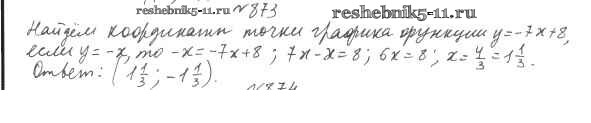 reshebnik5-11.ru №873 reshebnik5-11.ru
Найдём координаты точки графика функции y=-7x+8,
если y=-x, то -x=-7x+8; 7x-x=8; 6x=8; x=4/3=1 1/3.
Ответ: (1 1/3; -1 1/3).
№874